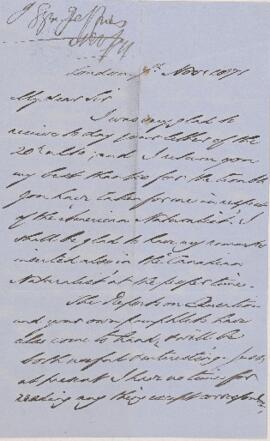 London Novr 1871
My dear Sir
I was very glad to
receive to day your letter of the
20th ulto; and I return you
my best thanks for the trouble
you have taken for me in respect
of the American Naturalist. I
shall be glad to have my remarks
inserted also in the Canadian
Naturalist at the proper time.
The Report on Education
and your own pamphlet have
also come to hand, & will be
both useful & interesting
at present I have no time for
reading any thing except